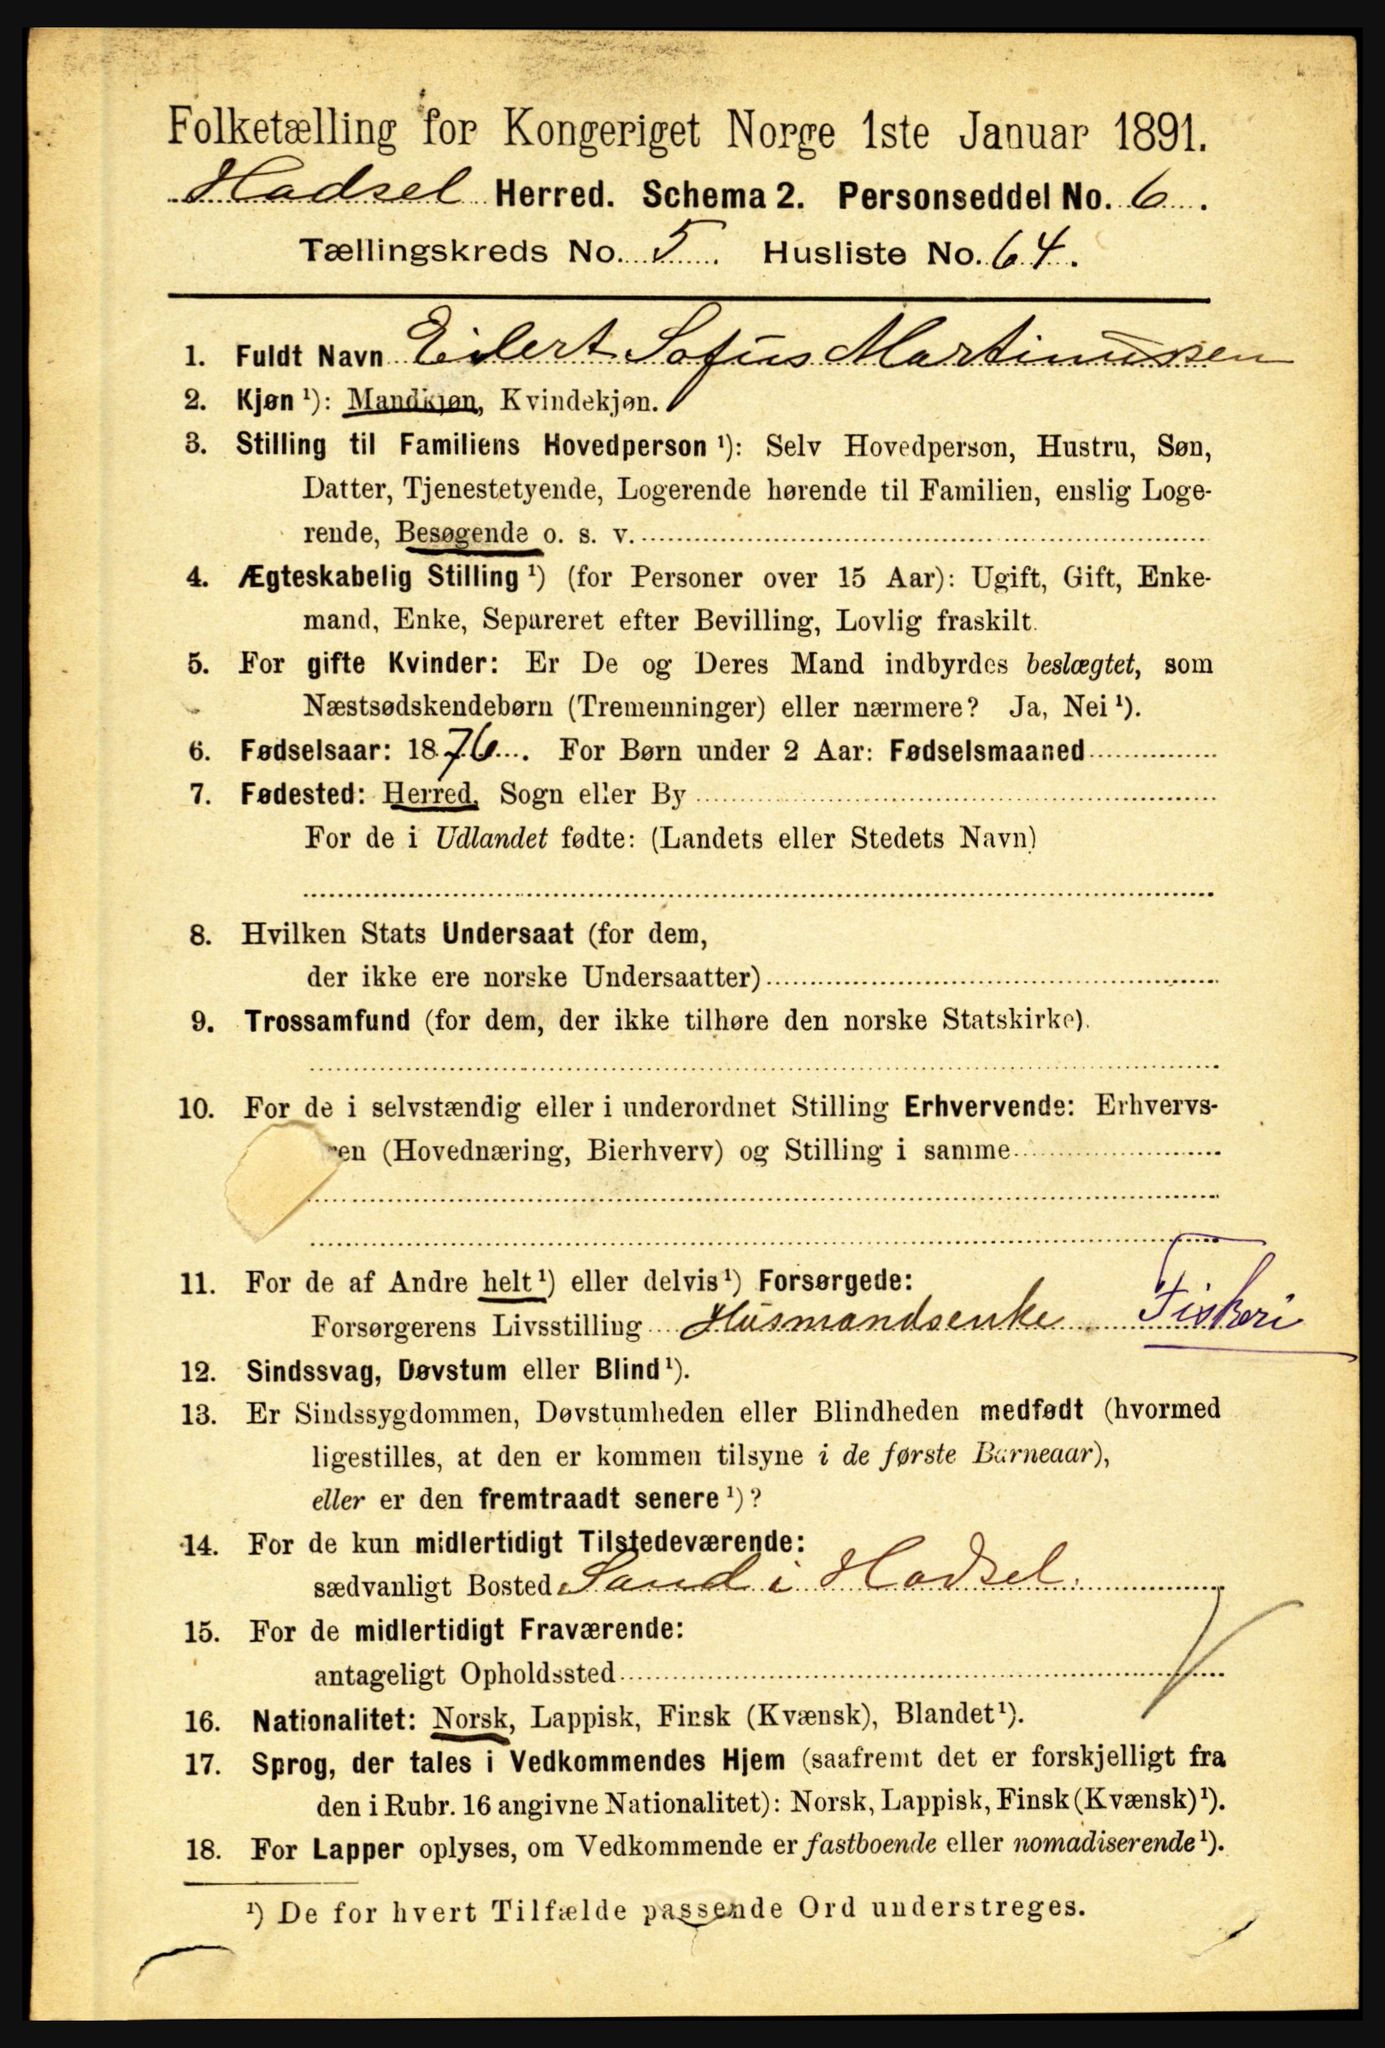 Folketælling for Kongeriget Norge 1ste Januar 1891.
Hadsel Herred. Schema 2. Personseddel No. 6.
Tællingskreds No. 5. Husliste No. 64.
1. Fuldt Navn Eilert Sofus Martinussen
2. Kjøn ¹): Mandkjøn, Kvindekjøn.
3. Stilling til Familiens Hovedperson ¹): Selv Hovedperson, Hustru, Søn,
Datter, Tjenestetyende, Logerende hørende til Familien, enslig Loge-
rende, Besøgende o. s. v.
4. Ægteskabelig Stilling ¹) (for Personer over 15 Aar): Ugift, Gift, Enke-
mand, Enke, Separeret efter Bevilling, Lovlig fraskilt.
5. For gifte Kvinder: Er De og Deres Mand indbyrdes beslægtet, som
Næstsødskendebørn (Tremenninger) eller nærmere? Ja, Nei ¹).
6. Fødselsaar: 1876. For Børn under 2 Aar: Fødselsmaaned
7. Fødested: Herred, Sogn eller By
For de i Udlandet fødte: (Landets eller Stedets Navn)
8. Hvilken Stats Undersaat (for dem,
der ikke ere norske Undersaatter)
9. Trossamfund (for dem, der ikke tilhøre den norske Statskirke).
10. For de i selvstændig eller i underordnet Stilling Erhvervende: Erhvervs-
ren (Hovednæring, Bierhverv) og Stilling i samme
11. For de af Andre helt ¹) eller delvis ¹) Forsørgede:
Forsørgerens Livsstilling Husmandsenke Fiskeri
12. Sindssvag, Døvstum eller Blind ¹).
13. Er Sindssygdommen, Døvstumheden eller Blindheden medfødt (hvormed
ligestilles, at den er kommen tilsyne i de første Barneaar),
eller er den fremtraadt senere ¹)?
14. For de kun midlertidigt Tilstedeværende:
sædvanligt Bosted Sand i Hadsel.
15. For de midlertidigt Fraværende:
antageligt Opholdssted
16. Nationalitet: Norsk, Lappisk, Finsk (Kvænsk), Blandet ¹).
17. Sprog, der tales i Vedkommendes Hjem (saafremt det er forskjelligt fra
den i Rubr. 16 angivne Nationalitet): Norsk, Lappisk, Finsk (Kvænsk) ¹).
18. For Lapper oplyses, om Vedkommende er fastboende eller nomadiserende ¹).
¹) De for hvert Tilfælde passende Ord understreges.